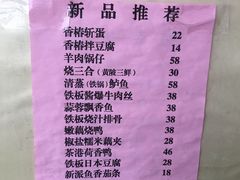 新品推荐
香椿斩蛋 22
香椿拌豆腐 14
羊肉锅仔 58
烧三合(黄陂三鲜) 30
清蒸(铁锅)鲈鱼 58
铁板酱爆牛肉丝 38
蒜蓉飘香鱼 38
铁板烧汁排骨 38
嫩藕烧鸭 38
椒盐糯米藕夹 28
茶港荷香鸭 46
铁板日本豆腐 28
新派鱼香茄条 18